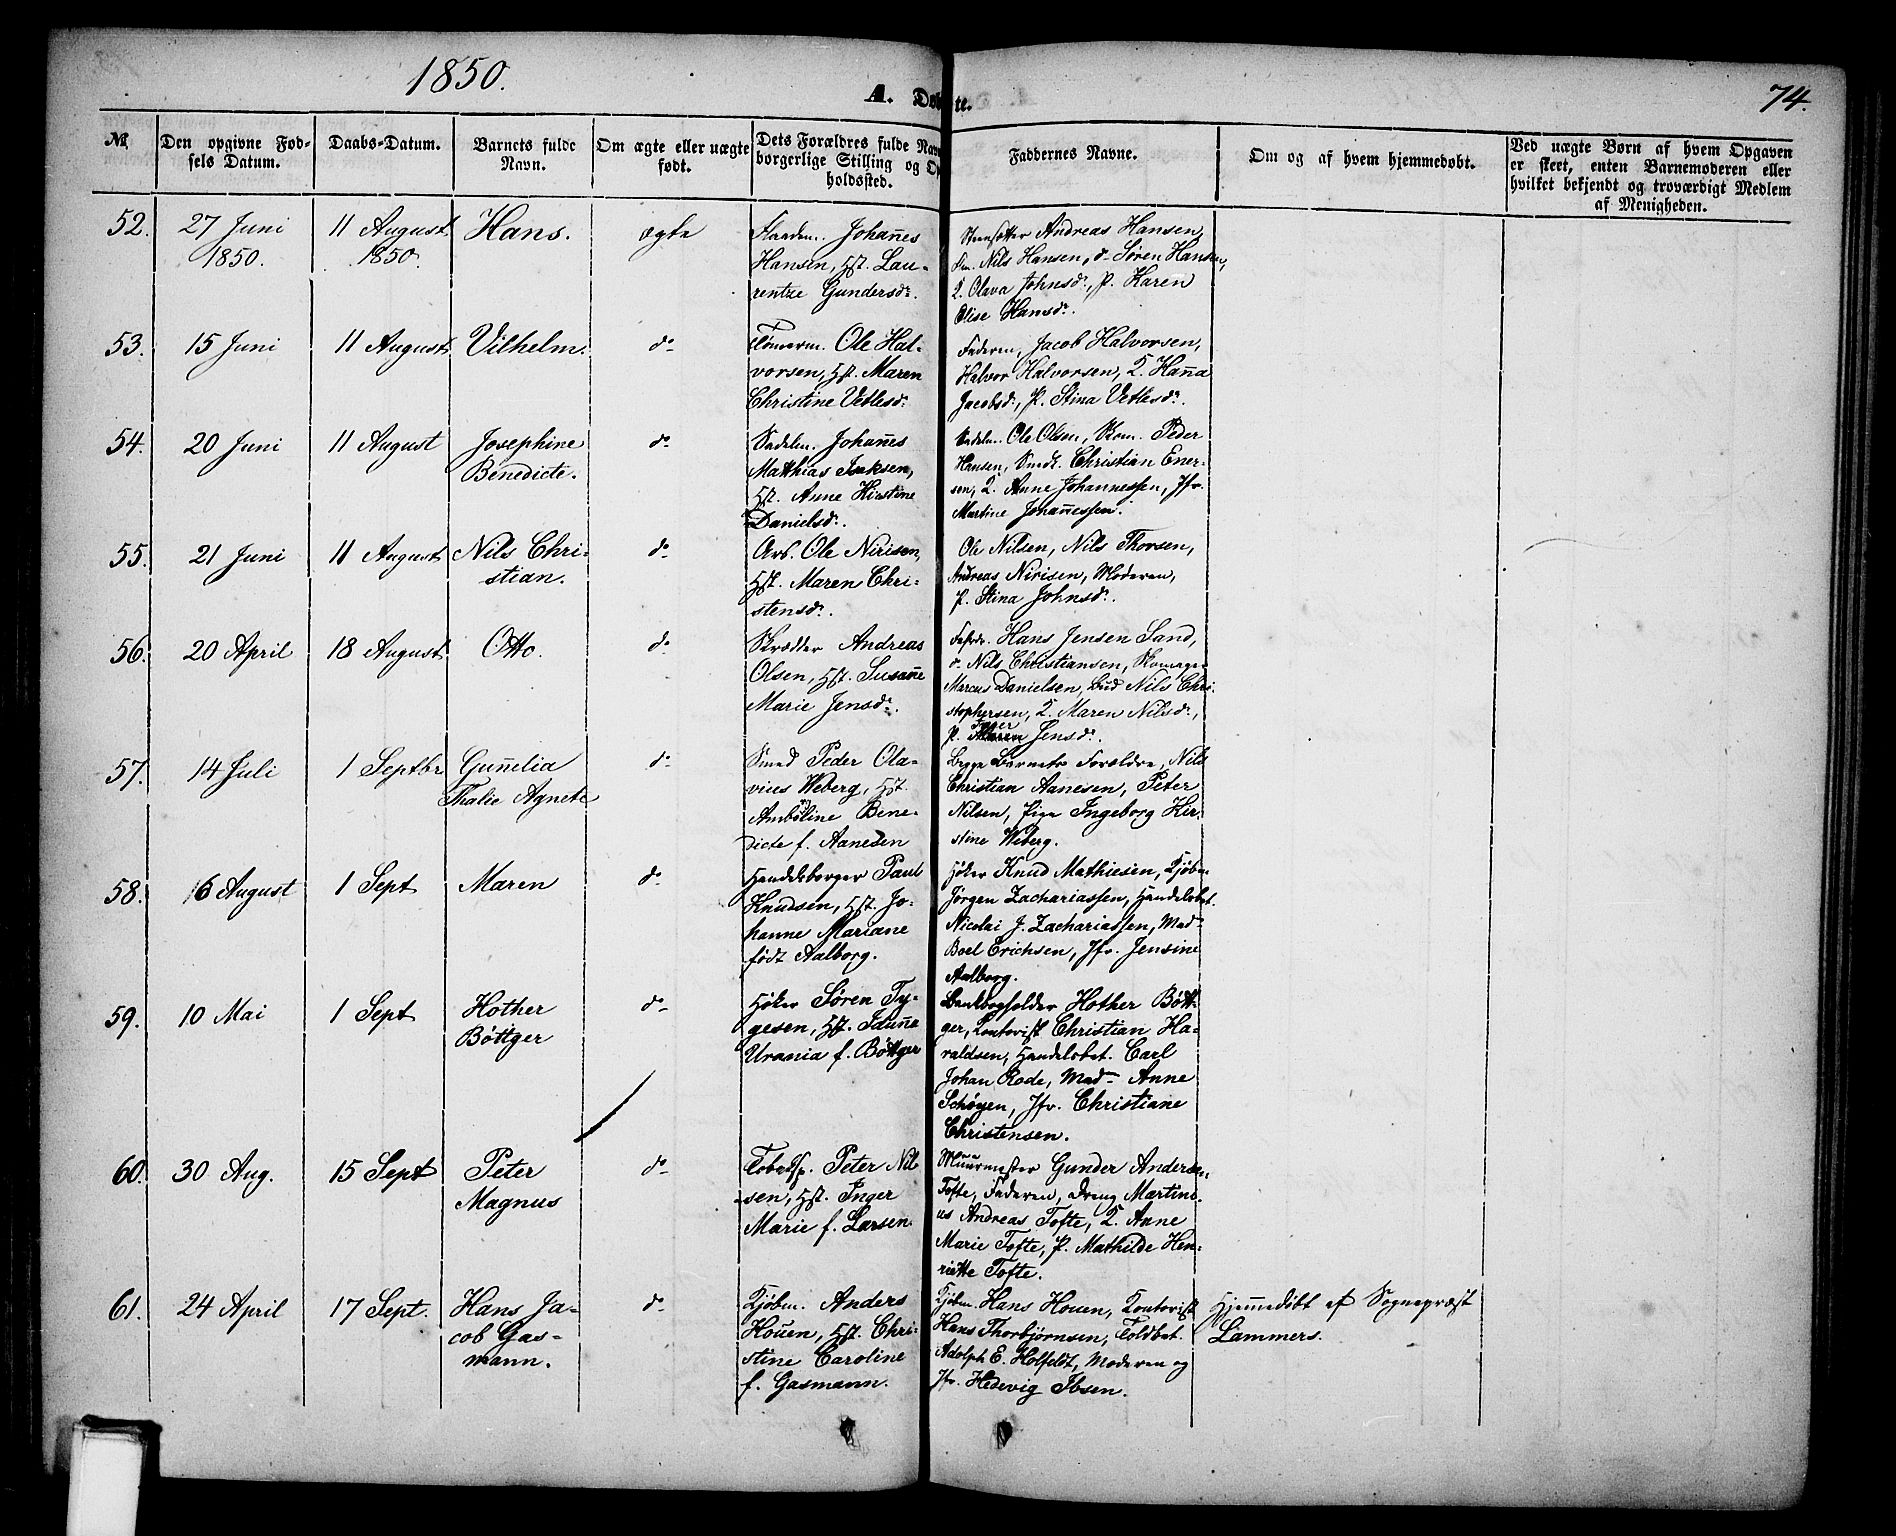 1850.
A. Døbte.
74.
No.
Den opgivne Fød-
sels Datum.
Daabs-Datum.
Barnets fulde
Navn.
Om ægte eller uægte
født.
Dets Forældres fulde Navn
borgerlige Stilling og Op
holdssted.
Faddernes Navne.
Om og af hvem hjemmedøbt.
Ved uægte Børn af hvem Opgaven
er skeet, enten Barnemoderen eller
hvilket bekjendt og troværdigt Medlem
af Menigheden.
52.
27 Juni
1850.
11 August
1850.
Hans.
ægte
Johañes
Hansen, Hst. Lau-
rentze Gundersdr.
Steenhotter Andreas Hansen,
Nils Hansen, do Søren Hansen,
K. Olava Johnsdr., P. Karen
Olise Hansdr.
53.
15 Juni
11 August
Vilhelm.
do
Tømerm. Ole Hal-
vorsen, Hst. Maren
Christine Vetlesdr.
Faderen, Jacob Halvorsen,
Halvor Halvorsen, K. Haña
Jacobsdr., P. Stina Vetlesdr.
54.
20 Juni
11 August
Josephine
Benedicte.
do
Sadelm. Johañes
Matthias Isaksen,
Hst. Anne Kirstine
Danielsdr.
Sadelm. Ole Olsen, Skom. Peder
Hansen, Smedt. Christian Ener-
sen, K. Anne Johannessen, Jfr.
Martine Johañessen.
55.
21 Juni
11 August
Nils Chri-
stian.
do
Arb. Ole Nirisen,
Hst. Maren Chri-
stensdr.
Ole Nilsen, Nils Thorsen,
Andreas Nirisen, Moderen,
P. Stina Johnsdr.
56.
20 April
18 August
Otto.
do
Skrædder Andreas
Olsen, Hst. Susañe
Marie Jensdr.
Hans Jensen Sand,
do Nils Christiansen, Skomager
Marcus Danielsen, Bud Nils Chri-
stophersen, K. Maren Nilsdr.,
Inger
P. Maren Jensdr.
57.
14 Juli
1 Septbr
Guñelia
Thalie Agnete
do
Smed Peder Ola-
vius Weberg, Hst.
Amboline Bene-
dicte f. Aanesen
Begge Barnets Forældre, Nils
Christian Aanesen, Peter
Nilsen, Pige Ingeborg Kir-
stine Weberg.
58.
16 August
1 Sept
Maren
do
Handelsborger Paul
Knudsen, Hst. Jo-
hanne Mariane
født Aalborg.
Høker Knud Mathiesen, Kjøbm
Jørgen Zachariassen, Handelsbet.
Nicolai J. Zachariassen, Mad-
Boel Erichsen, Jfr. Jensine
Aalborg.
59.
10 Mai
1 Sept
Hother
Bøttger
do
Høker Søren Ty-
gesen, Hst. Iduñe
Urania f. Bøttger
Bankbogholder Hother Bøtt-
ger, Kontorist Christian Ha-
raldsen, Handelsbet. Carl
Johan Rode, Mad- Anne
Schøyen, Jfr. Christiane
Christensen.
60.
30 Aug.
15 Sept
Peter
Magnus
do
Tobaksp. Peter Nil-
sen, Hst. Inger
Marie f. Larsen.
Muurmester Gunder Anders-
Tofte, Faderen, Dreng Martini-
us Andreas Tofte, K. Anne
Marie Tofte, P. Mathilde Hen-
riette Tofte.
61.
24 April
17 Sept.
Hans Ja-
cob Gas-
mann.
do
Kjøbm. Anders
Houen, Hst. Chri-
stine Caroline
f. Gasmann.
Kjøbm. Hans Houen, Kontorist
Hans Thorbjørnsen, Toldbet.
Adolph E. Holfeldt, Moderen og
Jfr. Hedevig Ibsen.
Hjemmedøbt af Sognepræst
Lammers.